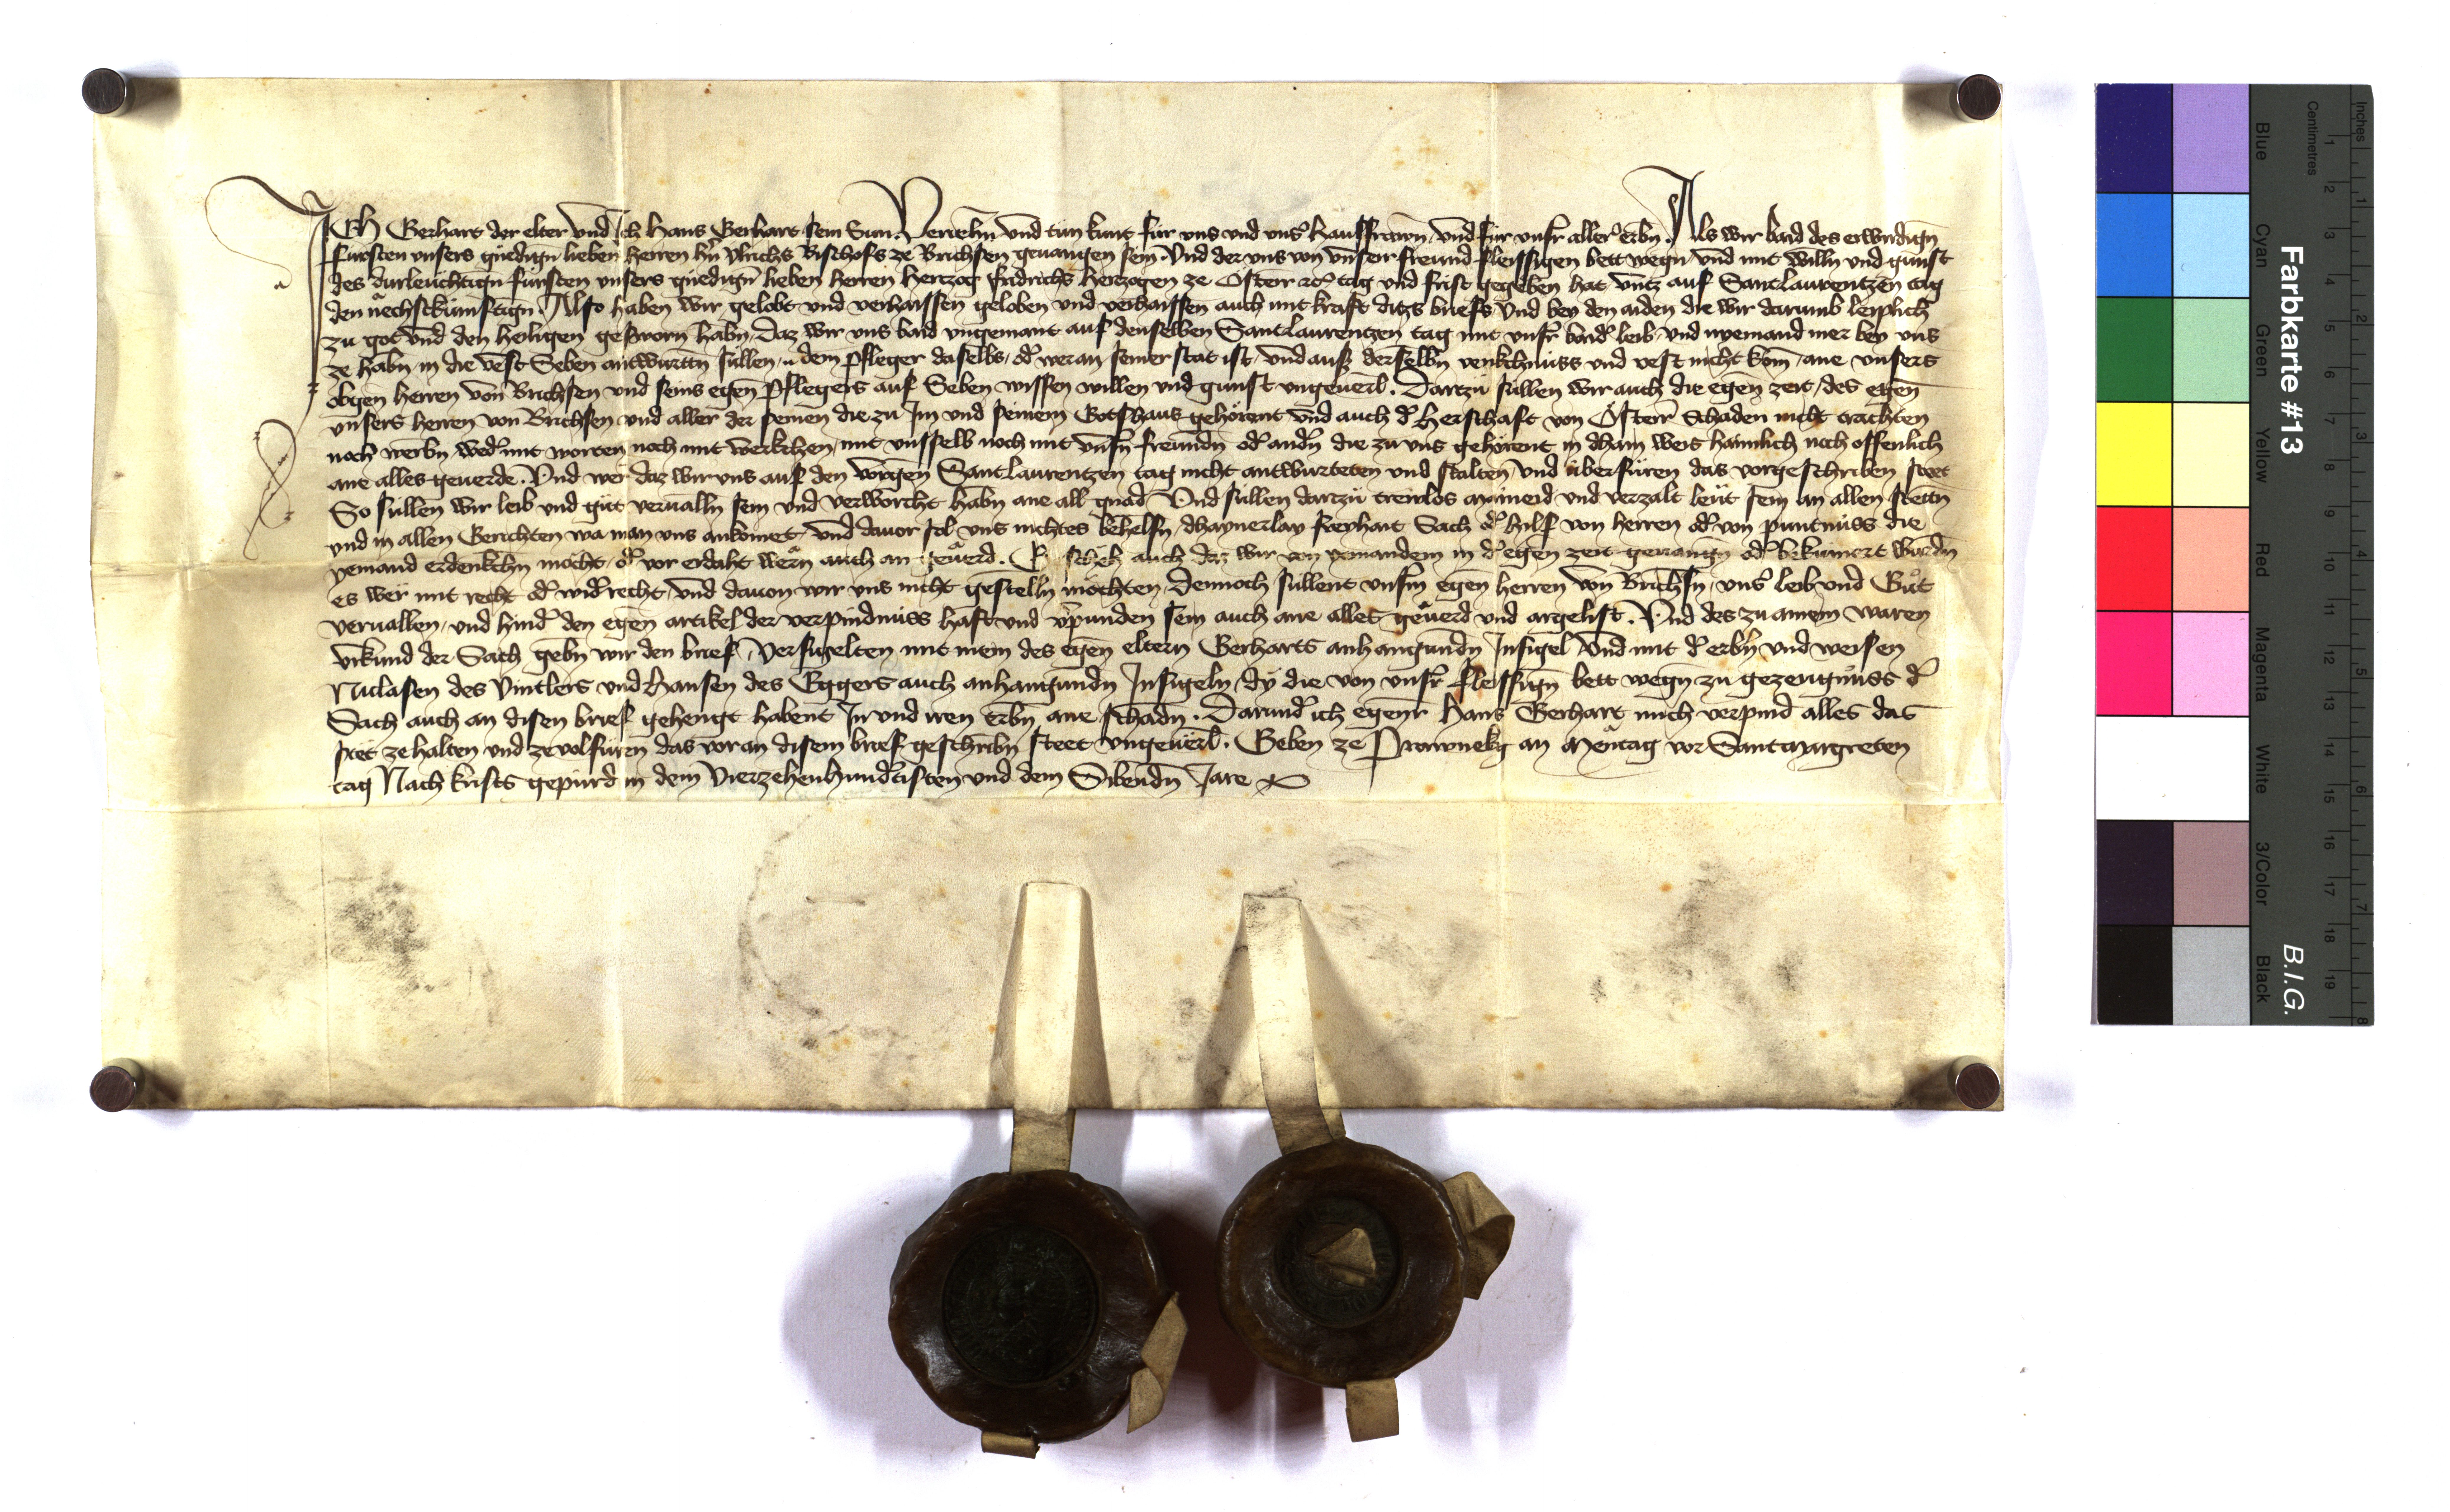 Ich Gerhart der elter und ich Hans Gerhart sein Sun Veriehn und tun kunt für uns und uns' Hausfrawn und für unsr aller erbn. Als wir baid des erwirdign
fürsten unsers gnedign lieben herren hn Ulrichs Bischofs ze Brichsen geuangen sein. Und der uns von unserr freund fleissigen bett wegn und mit willn und gunst
des durleuchtign fürsten unsers gnedign lieben herren Herczog Fridrichs Herczogen ze Österr rc tag und frist gegeben hat üntz auf Sant Laurentzen tag
den nachstkumftign. Also haben wir gelobt und verhaissen geloben und verhaissen auch mit kraft ditzs briefs und bey den aiden die wir darumb leiplich
zu got und den heiligen gesworn habn, daz wir uns baid ungemant auf denselben Sant Laurentzen tag mit unsr baid' leib und nyemand mer bey uns
ze habn in die vest Seben antwurttn sullen, dem Pfleger daselbs, od' weran seiner stat ist, und auss derselbn venkchnüss und vest nicht kom, ane unsers
obgen herren von Brichsen und seins egen Pflegers auf Seben wissen willen und gunst ungeuerl. Darzu sullen wir auch die egen zeit, des egen
unsers herren von Brichsen und aller der seinen die zu Im und seinem Gotshaus gehörent und auch d' Herschaft von Österr Schaden nicht trachten
noch werbn wed' mit worten noch mit werkchen, mit unsselb noch mit unsn freundn od' andn die zu uns gehörent in dhain weis haimlich noch offenlich
ane alles geuerde. Und wer daz wir uns auf den vorgen Sant Laurentzen tag nicht antwurteten und stalten und überfüren das vorgeschriben steet
So sullen wir leib und gut veruallen sein und verworcht habn ane all gnad Und sullen darzu trewlos mainaid und verzalt leut sein an allen stettn
und in allen Gerichten wa man uns ankomet, und dauor sol uns nichtes behelfn, dhaynerlay freyhait Sach od' hilf von herren od' von puntnüss die
yemand erdenkchn mocht, od' vor erdaht wern auch an geuerd. auch daz wir von yemandem in d' egen zeit geuangn od' bekümert wurdn
es wer mit recht od' wid'recht, und dauon wir uns nicht gestelln möchten, Dennoch sullent unsm egen herren von Brichsn, uns' leib und Gut
veruallen, und hind' den egen artikel der verpindnüss haft und v'punden sein auch ane alles geuerd und argelist. Und des zu ainem waren
urkund der Sach gebn wir den brief, Versigelten mit mein des egen eltern Gerharts anhangundn Insigel und mit d' erbn und weisen
Niclasen des Vintlers und Hansen des Eggers auch anhangundn Insigeln, dy die von unsr fleissign bett wegn zu gezeugnüss d'
Sach auch an disen brief gehengt habent In und iren erbn ane schadn. Darund' ich egenr Hans Gerhart mich verpind alles das
stet ze halten und ze volfüren das voran disem brief geschribn steet ungeuerl. Geben ze Prawnekg an Mentag vor Sant Margreten
tag Nach krists gepürd in dem Vierzehenhund'tisten und dem Sibendn Jare
Farbkarte #13
B.I.G.
Inches
Centimetres
Blue
Cyan
Green
Yellow
Red
Magenta
White
3/Color
Black
1 2 3 4 5 6 7 8 9 10 11 12 13 14 15 16 17 18 19
1 2 3 4 5 6 7 8